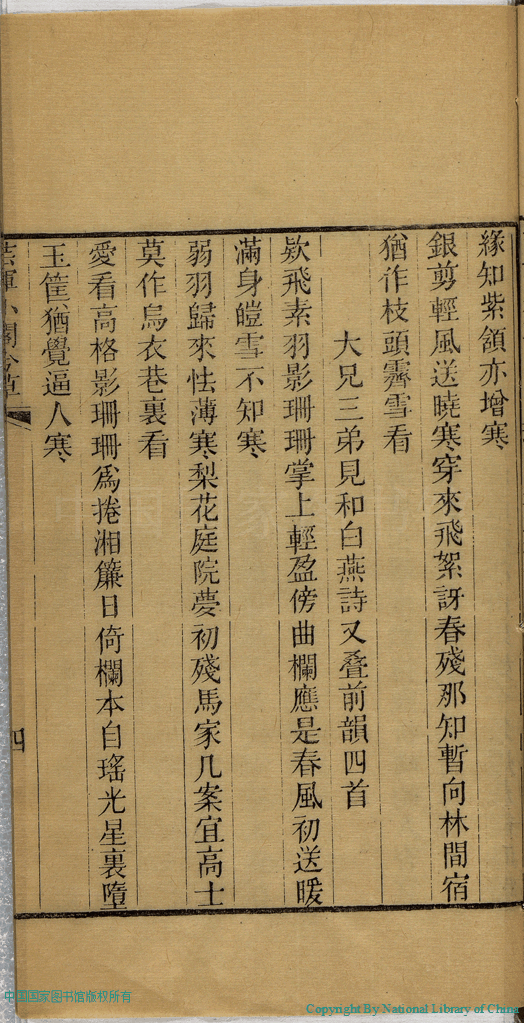 緣知紫頷亦增寒
銀剪輕風送曉寒穿來飛絮訝春殘那知暫向林間宿
猶作枝頭霽雪看
大兄三弟見和白燕詩又叠前韻四首
欵飛素羽影珊珊掌上輕盈傍曲欄應是春風初送暖
滿身皚雪不知寒
弱羽歸來怯薄寒梨花庭院夢初殘馬家几案宜高士
莫作烏衣巷裏看
愛看高格影珊珊爲捲湘簾日倚欄本自瑤光星裏墮
玉筐猶覺逼人寒
四
中国国家图书馆版权所有
Copyright By National Library of China